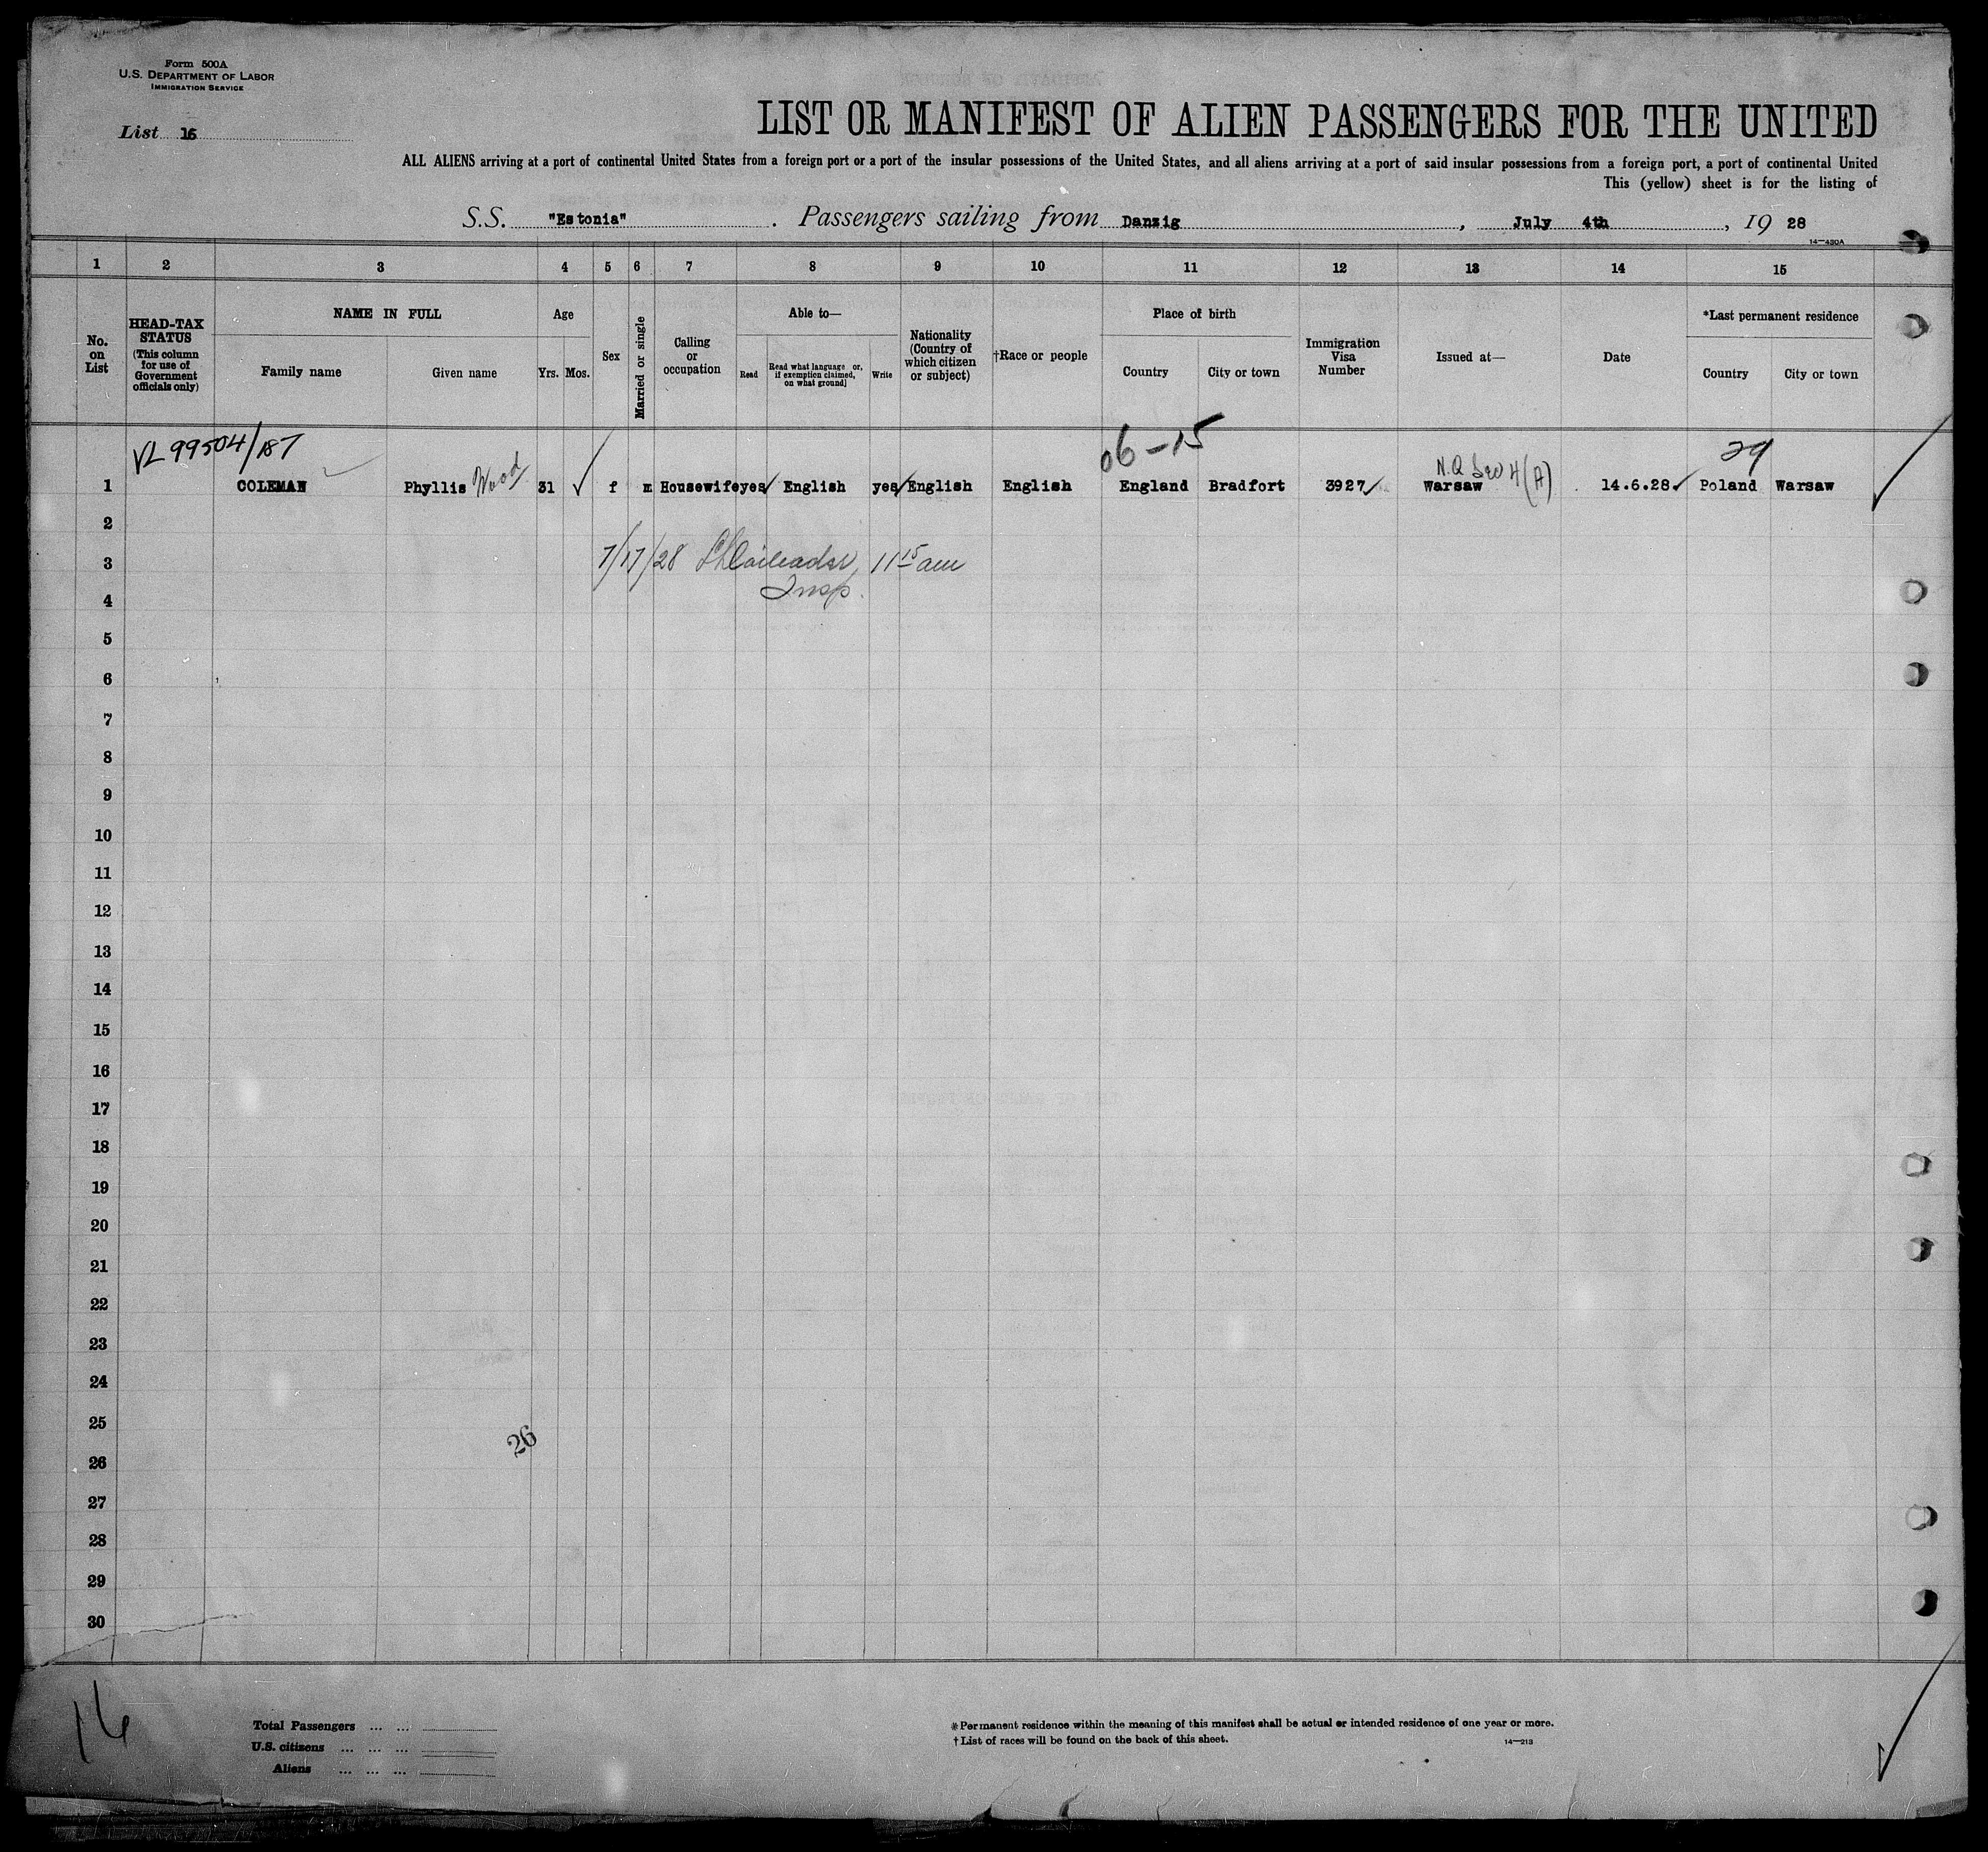 Form 500A
U.S. DEPARTMENT OF LABOR
IMMIGRATION SERVICE
List 16
LIST OR MANIFEST OF ALIEN PASSENGERS FOR THE UNITED
ALL ALIENS arriving at a port of continental United States from a foreign port or a port of the insular possessions of the United States, and all aliens arriving at a port of said insular possessions from a foreign port, a port of continental United
This (yellow) sheet is for the listing of
S.S. "Estonia" . Passengers sailing from Danzig , July 4th , 19 28
14—430A
1 2 3 4 5 6 7 8 9 10 11 12 13 14 15
No. on List
HEAD-TAX STATUS
(This column for use of Government officials only)
NAME IN FULL
Family name Given name
Age
Yrs. Mos.
Sex
Married or single
Calling or occupation
Able to—
Read
Read what language or, if exemption claimed, on what ground]
Write
Nationality (Country of which citizen or subject)
†Race or people
Place of birth
Country City or town
Immigration Visa Number
Issued at—
Date
*Last permanent residence
Country City or town
VL 99504/187 06-15 29
N.Q 4(A)
1 COLEMAN Phyllis Wood 31 ✓ f m Housewife yes English yes English English England Bradfort 3927 Warsaw 14.6.28. Poland Warsaw
2
3 7/17/28 11 15 am
Insp.
4
5
6
7
8
9
10
11
12
13
14
15
16
17
18
19
20
21
22
23
24
25
26
26
27
28
29
30
16
Total Passengers ... ...
U.S. citizens ... ... ...
Aliens ... ... ...
*Permanent residence within the meaning of this manifest shall be actual or intended residence of one year or more.
†List of races will be found on the back of this sheet.
14—213